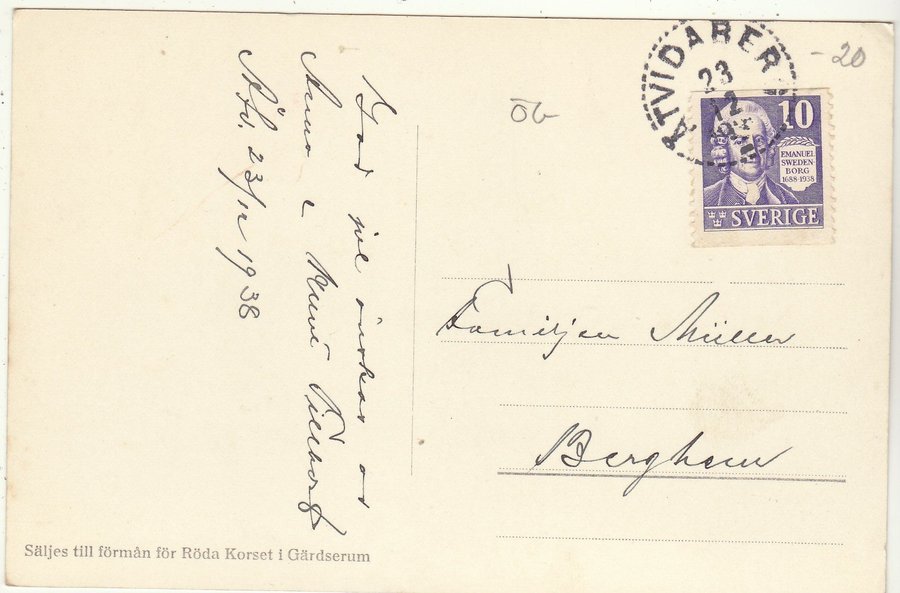 God jul önskar oss
Anna o Rune Fillborg
Åtv. 23/12 1938
Säljes till förmån för Röda Korset i Gärdserum
ÅTVIDABERG
23
12
-20
10
EMANUEL
SWEDEN-
BORG
1688-1938
SVERIGE
Familjen Müller
Berghem